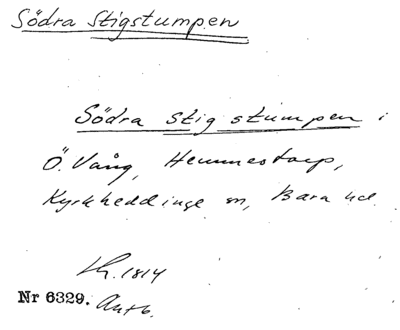 Södra Stigstumpen
Södra stig stumpen i
Ö. Vång, Hemmestorp,
Kyrkheddinge sn, Bara hd.
Lh. 1814
Nr 6329.